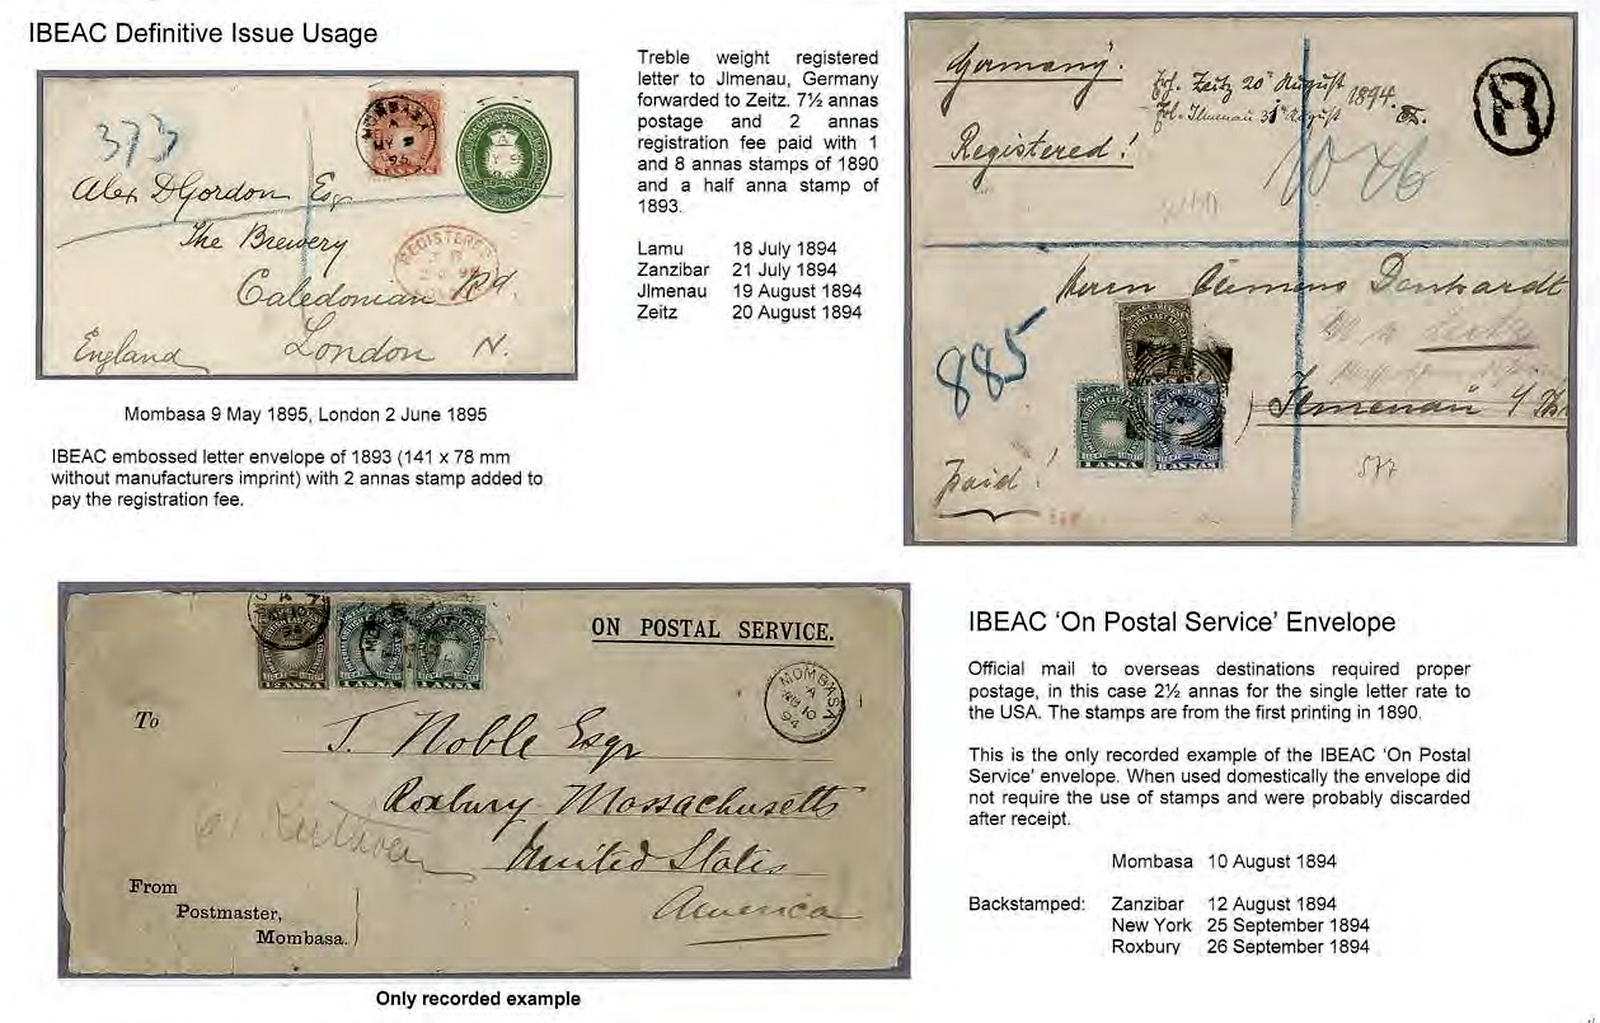 IBEAC Definitive Issue Usage
373
MOMBASA
A
95
Alex DGordon Esqr
The Brewery
REGISTERED
Caledonian Rd.
England London N.
Mombasa 9 May 1895, London 2 June 1895
IBEAC embossed letter envelope of 1893 (141 x 78 mm
without manufacturers imprint) with 2 annas stamp added to
pay the registration fee.
Treble weight registered
letter to Jlmenau, Germany
forwarded to Zeitz. 7½ annas
postage and 2 annas
registration fee paid with 1
and 8 annas stamps of 1890
and a half anna stamp of
1893.
Lamu 18 July 1894
Zanzibar 21 July 1894
Jlmenau 19 August 1894
Zeitz 20 August 1894
Germany.
Zeitz 20 August 1894.
Ilmenau August
R
Registered!
Herrn Clemens Denhardt
885
Ilmenau
1 ANNA
paid!
577
ON POSTAL SERVICE.
1 ANNA 1 ANNA
MOMBASA
A
10
94
To
J. Noble Esqr
Roxbury Massachusetts
United States
America
From
Postmaster,
Mombasa.
Only recorded example
IBEAC ‘On Postal Service’ Envelope
Official mail to overseas destinations required proper
postage, in this case 2½ annas for the single letter rate to
the USA. The stamps are from the first printing in 1890.
This is the only recorded example of the IBEAC ‘On Postal
Service’ envelope. When used domestically the envelope did
not require the use of stamps and were probably discarded
after receipt.
Mombasa 10 August 1894
Backstamped: Zanzibar 12 August 1894
New York 25 September 1894
Roxbury 26 September 1894